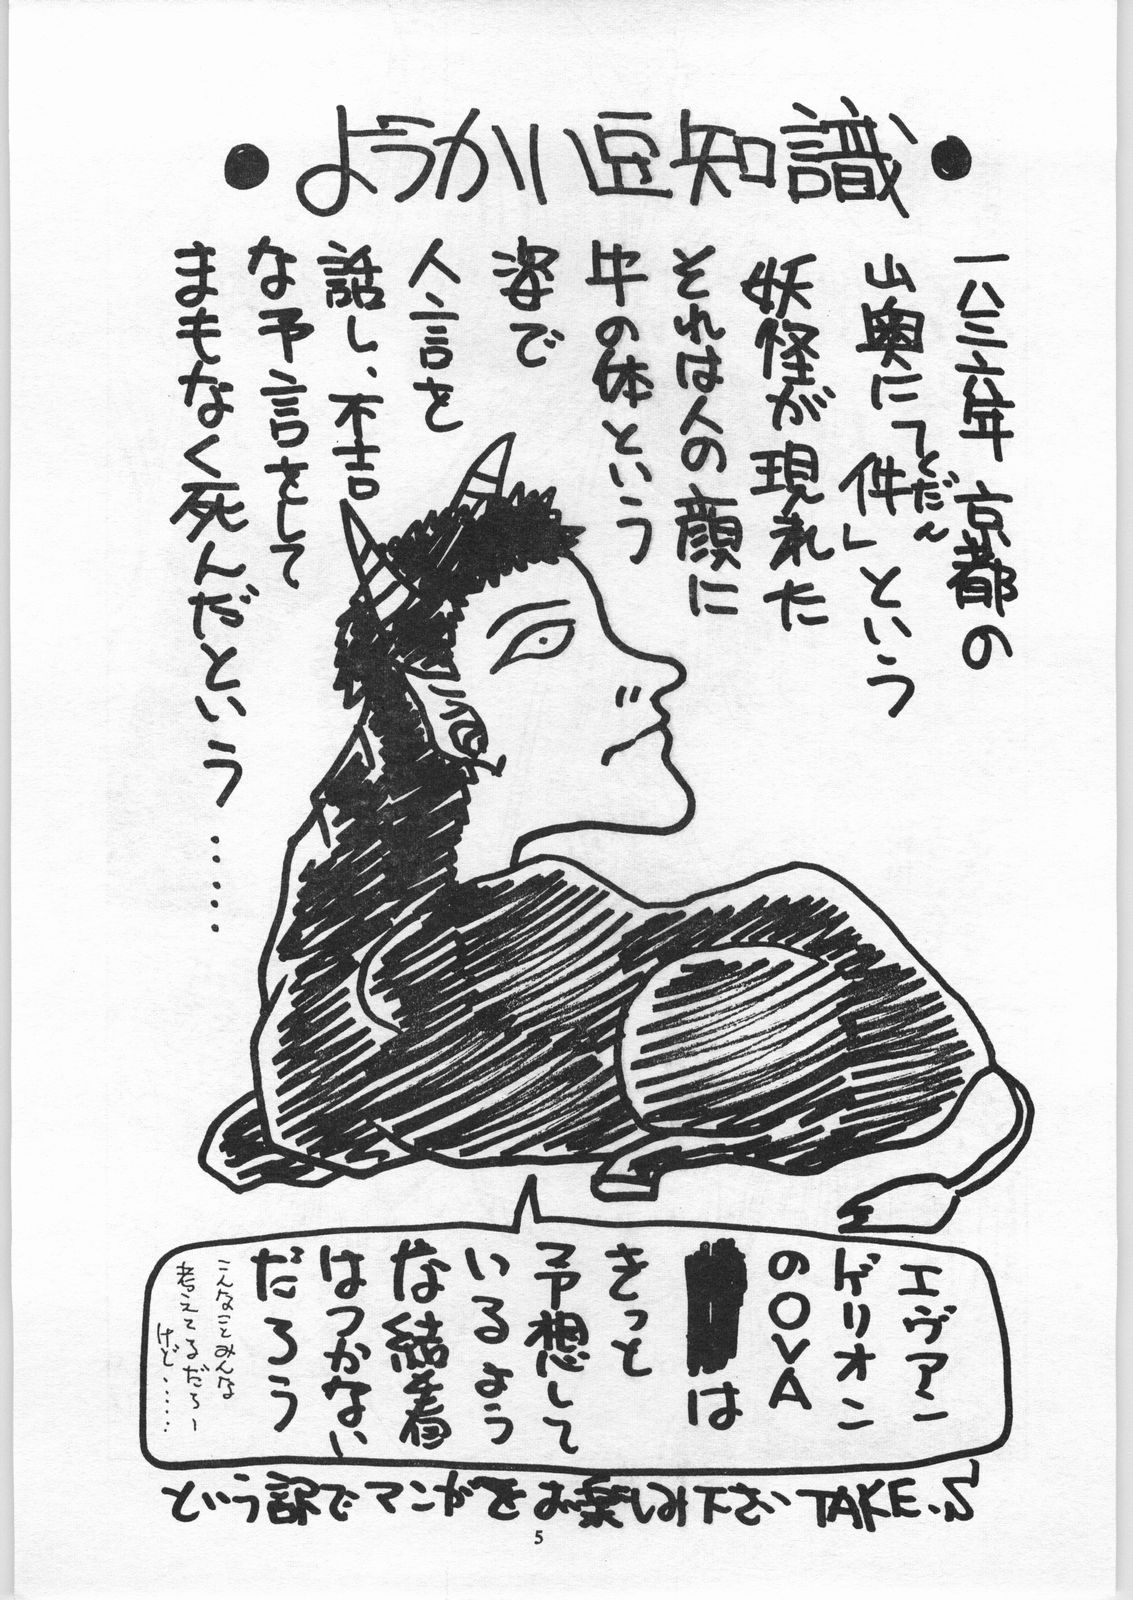 ●ようかい豆知識●
一八三六年 京都の
山奥にて「件」という
くだん
妖怪が現れた
それは人の顔に
牛の体という
姿で
人言を
話し、不吉
な予言をして
まもなく死んだという……
エヴァン
ゲリオン
のOVA
は
きっと
予想して
いるよう
な結着
はつかない
だろう
こんなことみんな
考えてるだろー
けど……
という訳でマンガをお楽しみ下さい TAKE.S
5